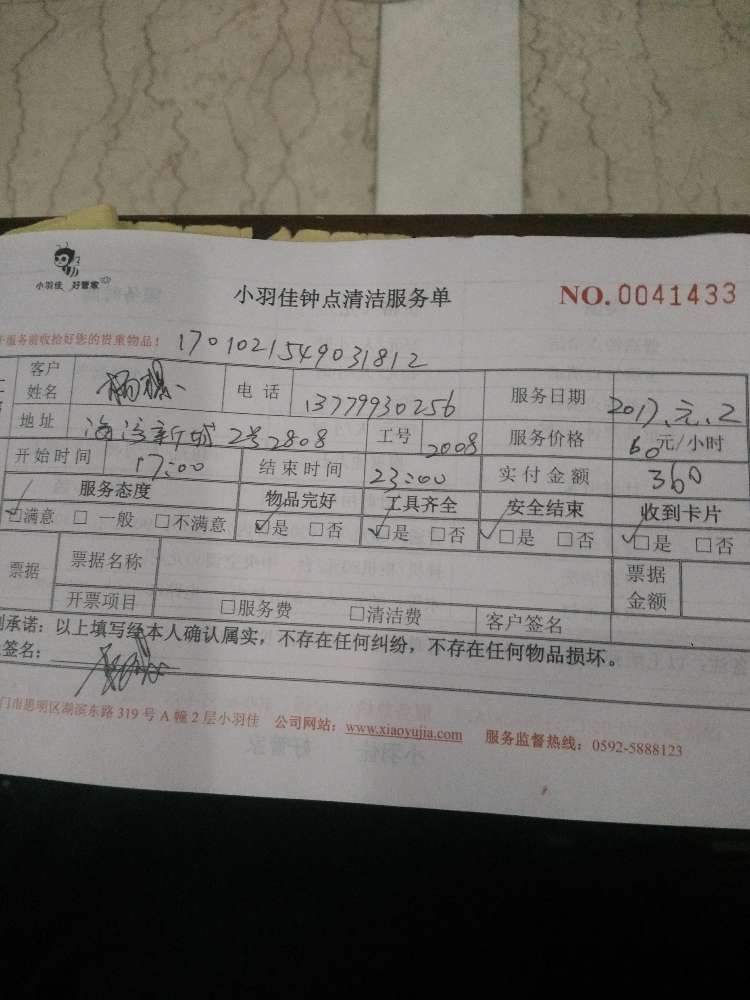 小羽佳 好管家
小羽佳钟点清洁服务单
NO. 0041433
服务前收拾好您的贵重物品！ 1701021549031812
客户姓名 杨 电话 13779930256 服务日期 2017.元.2
地址 新城2号2808 工号 2008 服务价格 60元/小时
开始时间 17:00 结束时间 23:00 实付金额 360
服务态度 物品完好 工具齐全 安全结束 收到卡片
☑满意 □一般 □不满意 ☑是 □否 ☑是 □否 ☑是 □否 ☑是 □否
票据 票据名称 票据金额
开票项目 □服务费 □清洁费 客户签名
承诺：以上填写经本人确认属实，不存在任何纠纷，不存在任何物品损坏。
签名：
门市思明区湖滨东路319号A幢2层小羽佳 公司网站：www.xiaoyujia.com 服务监督热线：0592-5888123